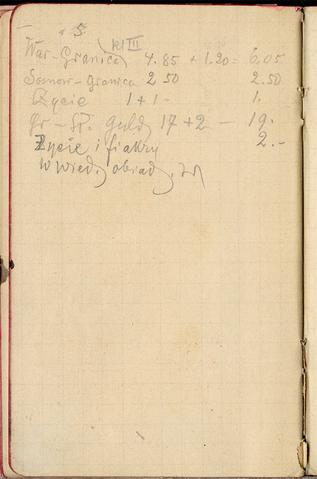 5.
kl III
War-Granica 4.85 + 1.20 = 6.05
Sosnow-Granica 2 50 2.50
Życie 1 + 1 - 1.
Gr - guld 17 + 2 - 19.
Życie i fiakry 2.-
w Wied. obiad,